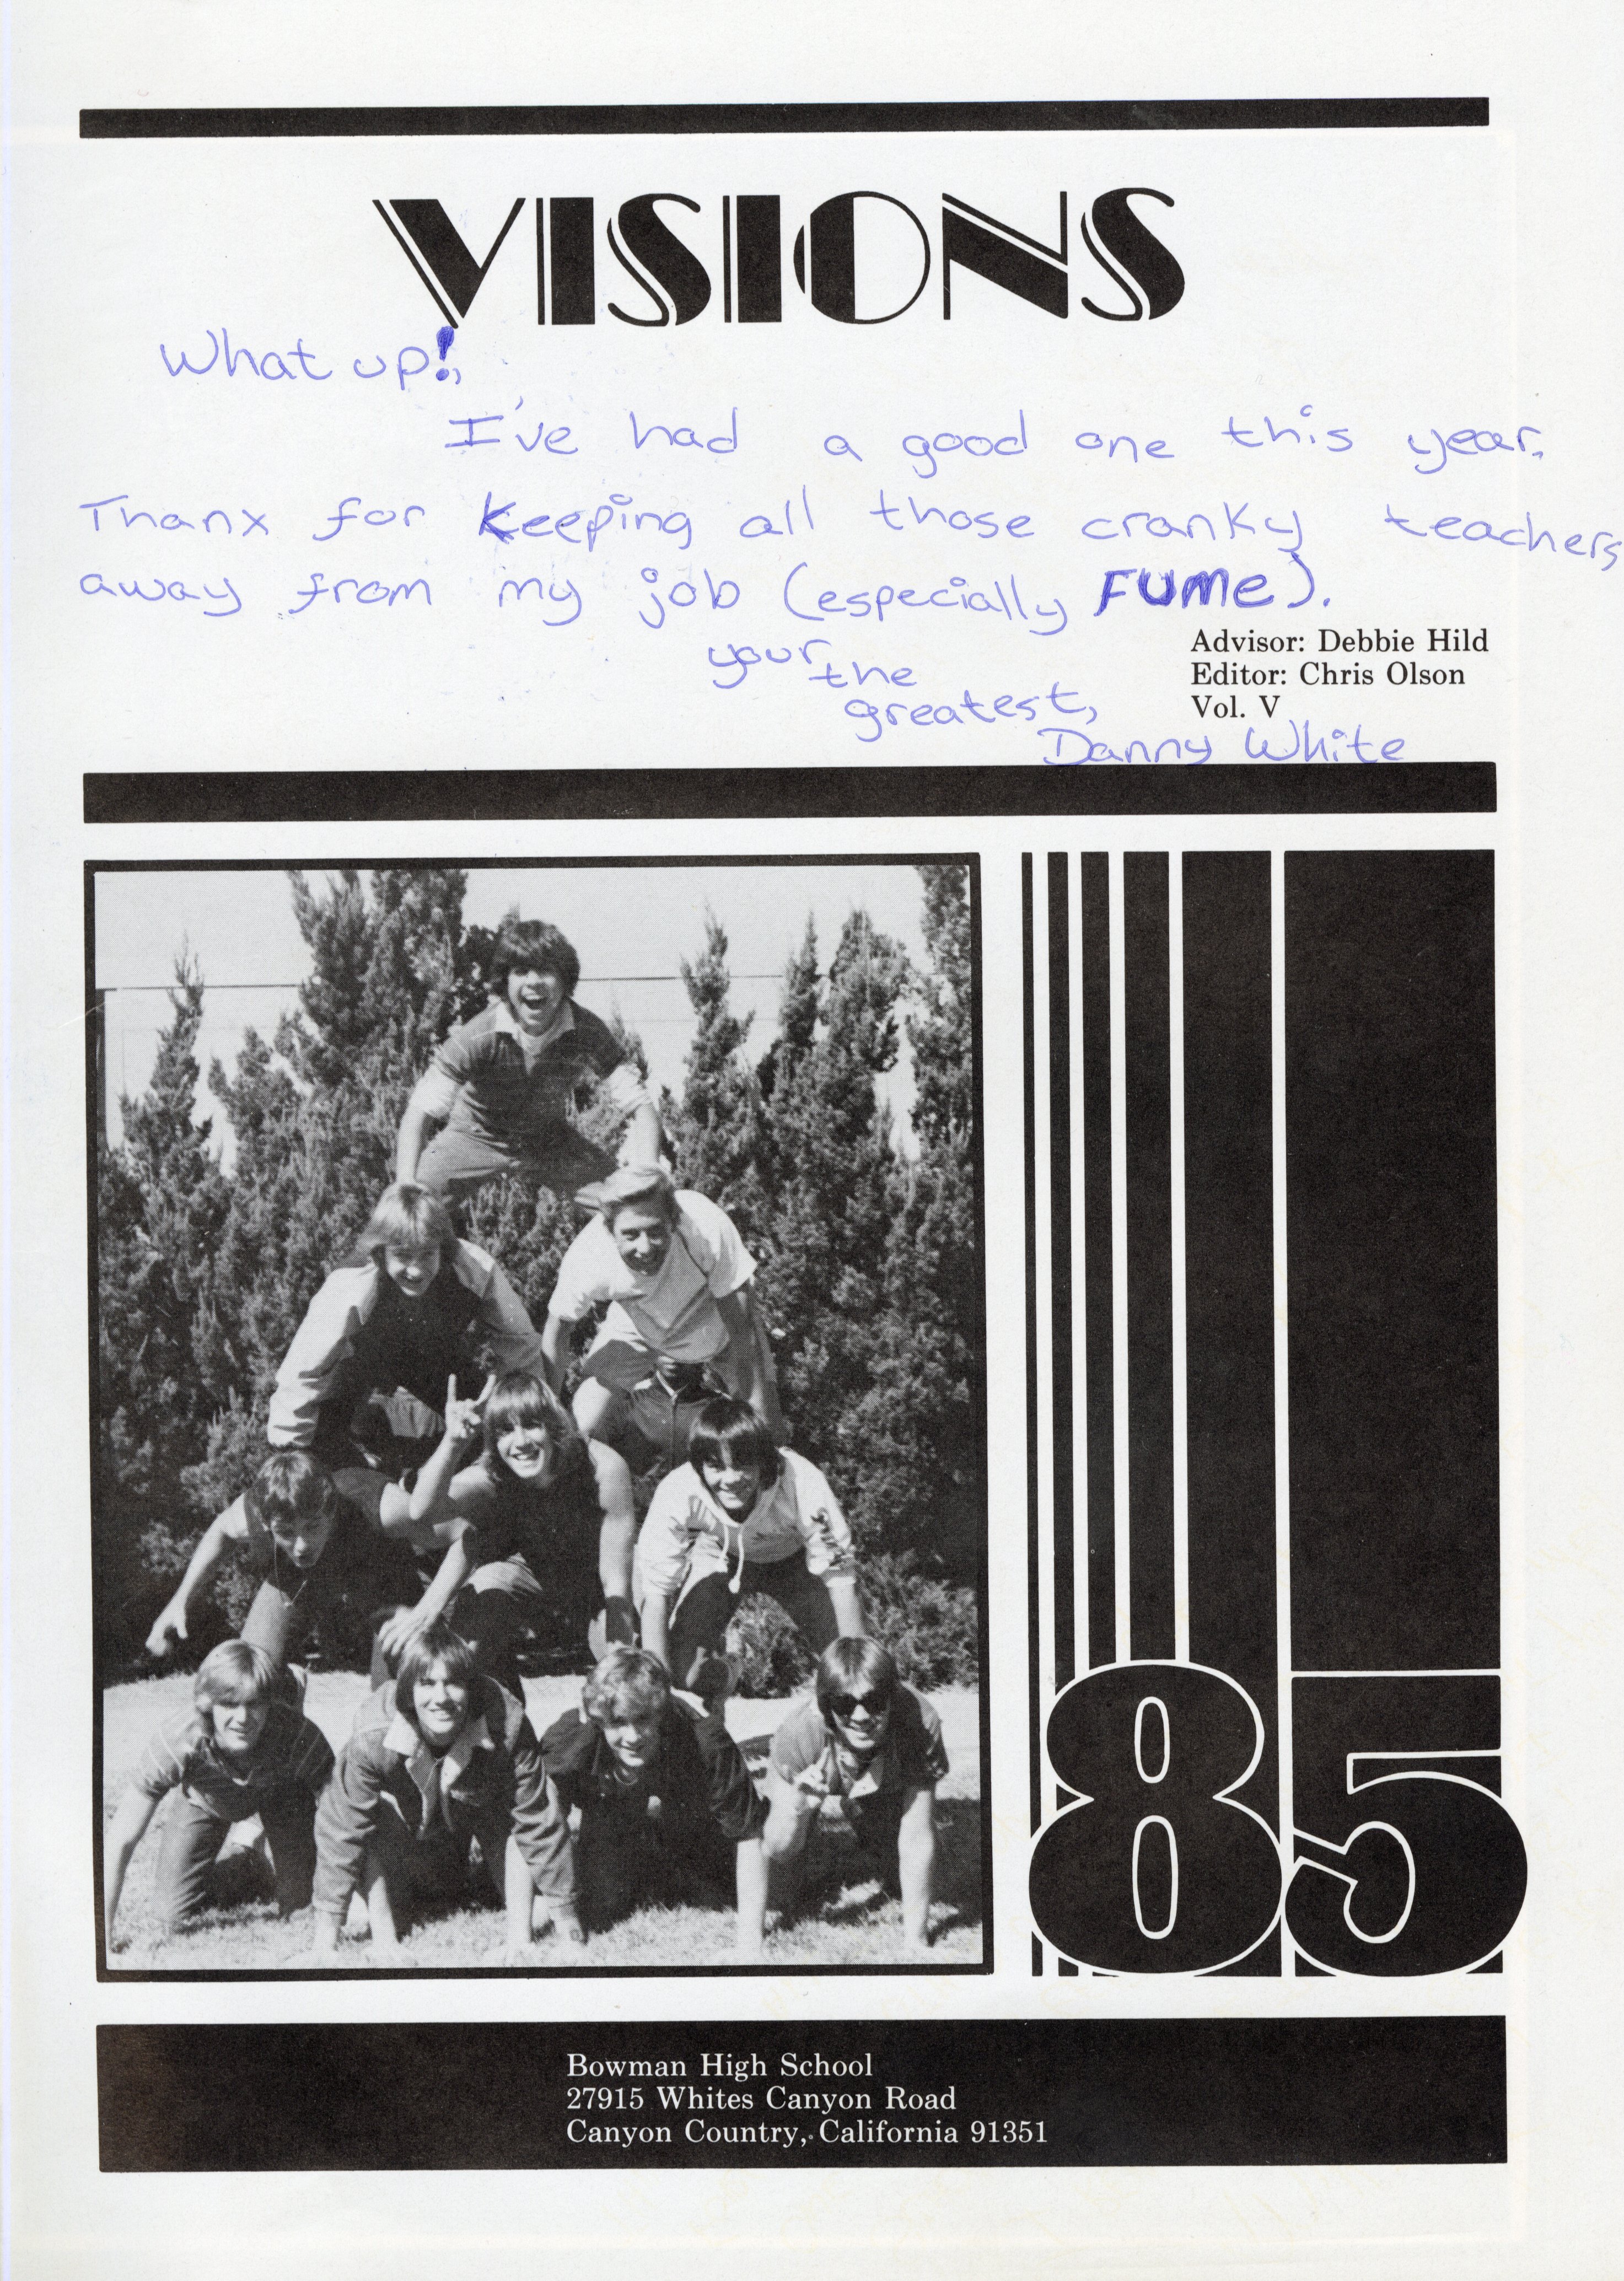 VISIONS
What up!,
I've had a good one this year.
Thanx for keeping all those cranky teachers
away from my job (especially FUME).
your the
greatest,
Danny White
Advisor: Debbie Hild
Editor: Chris Olson
Vol. V
85
Bowman High School
27915 Whites Canyon Road
Canyon Country, California 91351